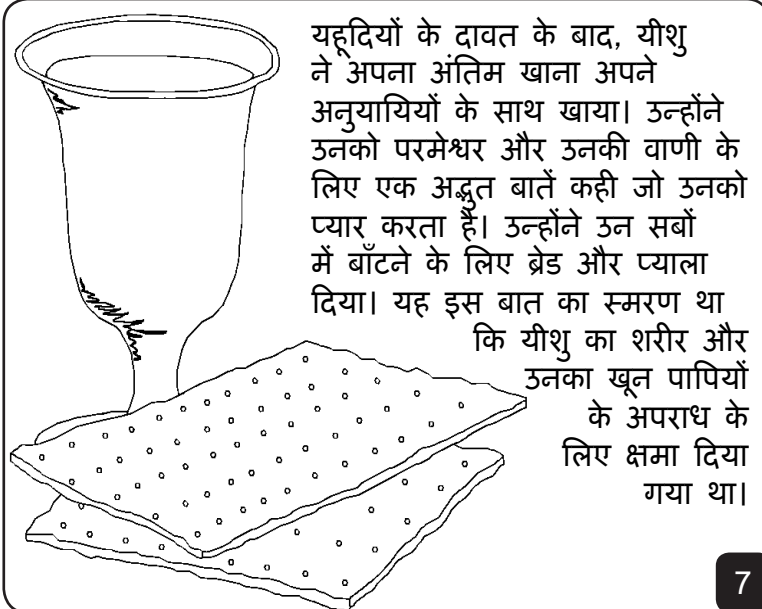 यहूदियों के दावत के बाद, यीशु
ने अपना अंतिम खाना अपने
अनुयायियों के साथ खाया। उन्होंने
उनको परमेश्वर और उनकी वाणी के
लिए एक अद्भुत बातें कही जो उनको
प्यार करता है। उन्होंने उन सबों
में बाँटने के लिए ब्रेड और प्याला
दिया। यह इस बात का स्मरण था
कि यीशु का शरीर और
उनका खून पापियों
के अपराध के
लिए क्षमा दिया
गया था।
7